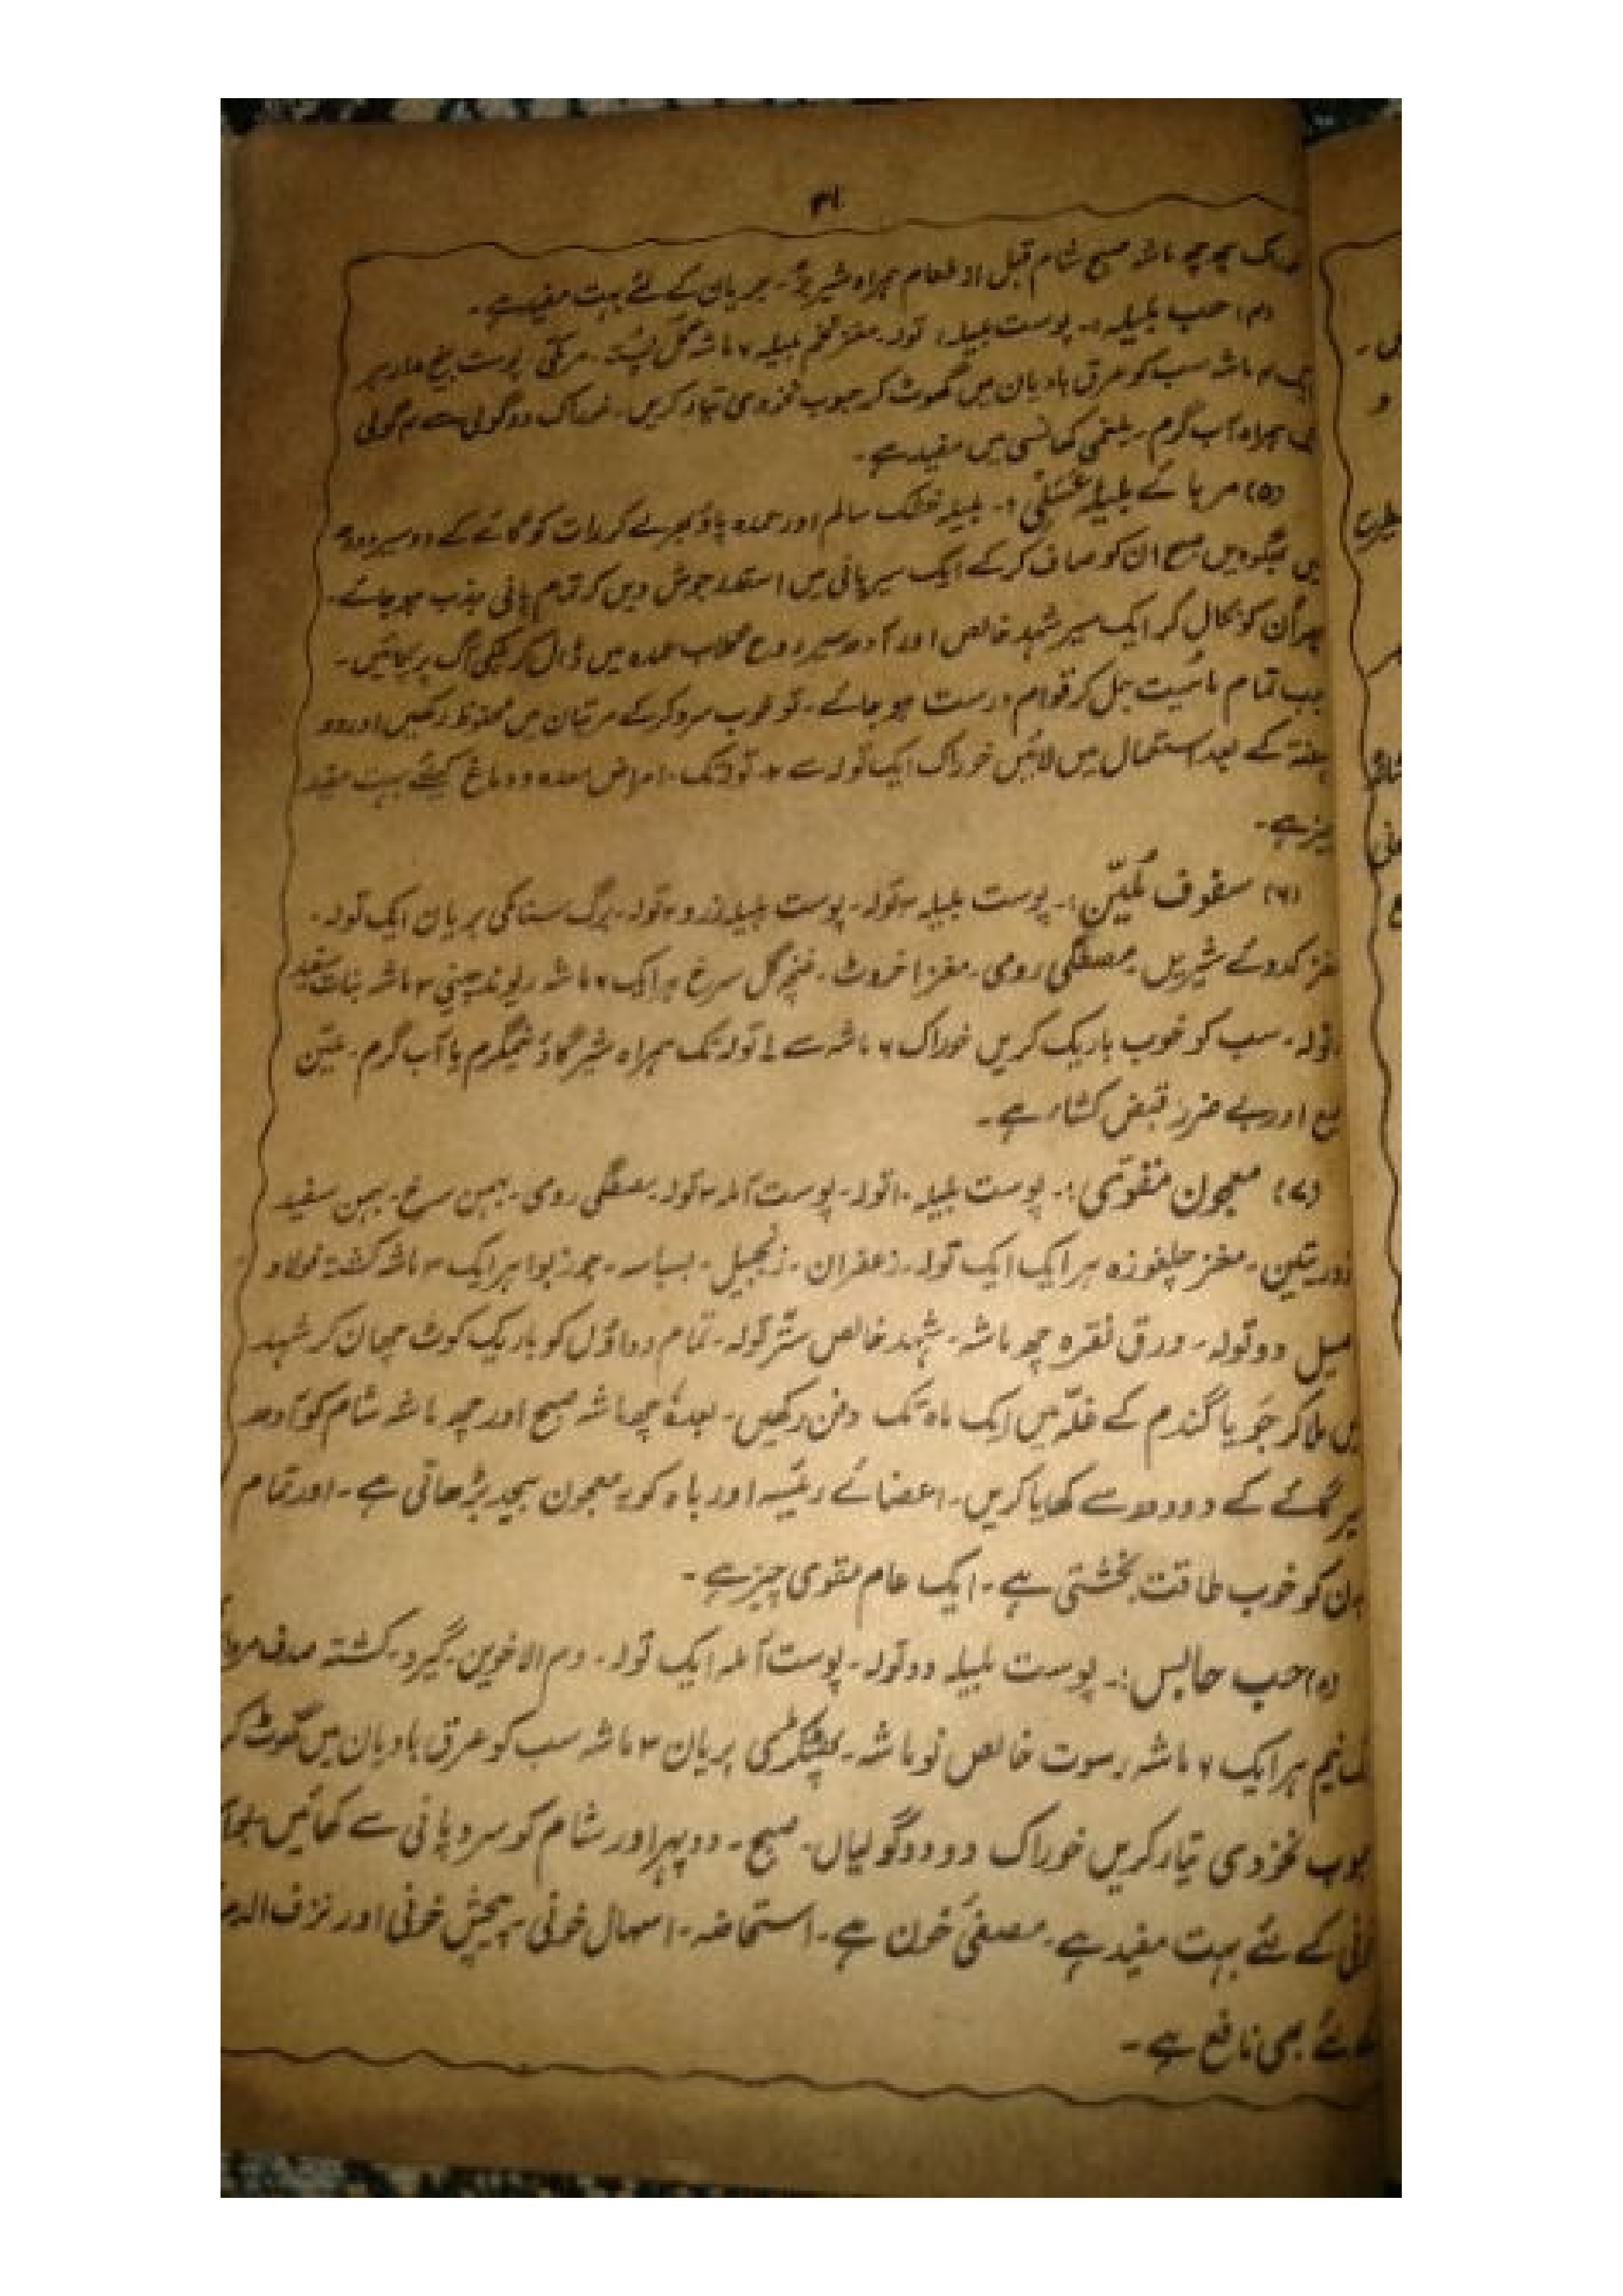 ۳۱
چھ چھ ماشہ صبح شام قبل از طعام ہمراہ شیر بز۔ جریان کے لئے بہت مفید ہے۔
(۴) حب بلیلہ:۔ پوست بلیلہ ۱ تولہ۔ مغز تخم بلیلہ ۶ ماشہ گل پستہ۔ مرمکی پوست بیخ مدار ہر
ایک ۳ ماشہ سب کو عرق بادیان میں گھوٹ کر حبوب نخودی تیار کریں۔ خوراک دو گولی سے ۴ گولی
ہمراہ آب گرم۔ بلغمی کھانسی میں مفید ہے۔
(۵) مربائے بلیلہ عسلی:۔ بلیلہ خشک سالم اور عمدہ پاؤ بھر لے کر رات کو گائے کے دو سیر دودھ
میں بھگو دیں صبح ان کو صاف کر کے ایک سیر پانی میں استقدر جوش دیں کہ تمام پانی جذب ہو جائے۔
پھر اُن کو نکال کر ایک سیر شہد خالص اور آدھ سیر روح گلاب عمدہ میں ڈال کر ہلکی آگ پر پکائیں۔
جب تمام مائیت جل کر قوام درست ہو جائے۔ تو خوب سرد کر کے مرتبان میں محفوظ رکھیں اور دو
ہفتہ کے بعد استعمال میں لائیں خوراک ایک تولہ سے ۲ تولہ تک۔ امراض معدہ و دماغ کیلئے بہت مفید
چیز ہے۔
(۶) سفوف مُلیّن:۔ پوست بلیلہ ۲ تولہ۔ پوست ہلیلہ زرد ۲ تولہ۔ برگ سنا مکی بریان ایک تولہ۔
مغز کدوئے شیریں۔ مصطگی رومی۔ مغز اخروٹ۔ غنچہ گل سرخ ہر ایک ۶ ماشہ ریوند چینی ۳ ماشہ نبات سفید
تولہ۔ سب کو خوب باریک کریں خوراک ۶ ماشہ سے ۱ تولہ تک ہمراہ شیر گاؤ نیمگرم یا آب گرم۔ ملیّن
اور بے ضرر قبض کشاء ہے۔
(۷) معجون مقوّی:۔ پوست بلیلہ ۱۰ تولہ۔ پوست آملہ ۲ تولہ۔ مصطگی رومی۔ بہمن سرخ۔ بہمن سفید
زوریتین۔ مغز چلغوزہ ہر ایک ایک تولہ۔ زعفران۔ زنجبیل۔ بسباسہ۔ جوزبوا ہر ایک ۳ ماشہ کشتہ فولاد
دو تولہ۔ ورق نقرہ چھ ماشہ۔ شہد خالص ستّر تولہ۔ تمام دواؤں کو باریک کوٹ چھان کر شہد
میں ملا کر جَو یا گندم کے غلّہ میں ایک ماہ تک دفن رکھیں۔ بعدہٗ چھ ماشہ صبح اور چھ ماشہ شام کو آدھ
سیر گائے کے دودھ سے کھایا کریں۔ اعضائے رئیسہ اور باہ کو یہ معجون بیحد بڑھاتی ہے۔ اور تمام
بدن کو خوب طاقت بخشتی ہے۔ ایک عام مقوی چیز ہے۔
(۸) حب حابس:۔ پوست بلیلہ دو تولہ۔ پوست آملہ ایک تولہ۔ دم الاخوین۔ گیرو۔ کشتہ صدف
نیم ہر ایک ۶ ماشہ رسوت خالص نو ماشہ۔ پھٹکڑی بریان ۳ ماشہ سب کو عرق بادیان میں گھوٹ کر
حبوب نخودی تیار کریں خوراک دو دو گولیاں۔ صبح۔ دوپہر اور شام کو سرد پانی سے کھائیں۔
خونی کے لئے بہت مفید ہے۔ مصفیٰ خون ہے۔ استحاضہ۔ اسہال خونی پیچش خونی اور نزف الدم
کے لئے بھی نافع ہے۔